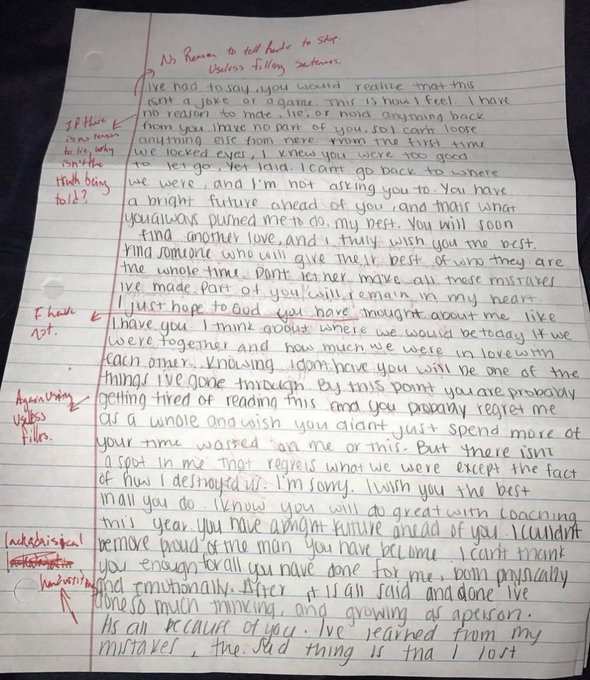 No Reason to tell reader to stop.
Useless filling sentences.
Ive had to say, you would realize that this
isnt a joke or a game. This is how I feel. I have
no reason to hide, lie, or hold anything back
from you. I have no part of you, so I cant loose
anything else from here. From the first time
we locked eyes, I knew you were too good
to let go. Yet I did. I cant go back to where
we were, and I'm not asking you to. You have
a bright future ahead of you, and thats what
you always pushed me to do, my best. You will soon
find another love, and i truly wish you the best.
Find someone who will give their best of who they are
the whole time. Dont let her make all these mistakes
ive made. Part of you will remain in my heart
I just hope to God you have thought about me like
I have you. I think about where we would be today if we
were together and how much we were in love with
each other. Knowing I dont have you will be one of the
things I've gone through. By this point you are probably
getting tired of reading this and you probably regret me
as a whole and wish you didnt just spend more of
your time wasted on me or this. But there isnt
a spot in me that regrets what we were except the fact
of how I destroyed us. I'm sorry. I wish you the best
in all you do. I know you will do great with coaching
this year. You have a bright future ahead of you. I couldn't
be more proud of the man you have become. I can't thank
you enough for all you have done for me, both physically
and emotionally. After it is all said and done ive
done so much thinking, and growing as a person.
Its all because of you. Ive learned from my
mistakes, the sad thing is tha I lost
If there
is no reason
to lie, why
isn't the
truth being
told?
I have
not.
Again using
useless
fillers.
lackadaisical
handwriting